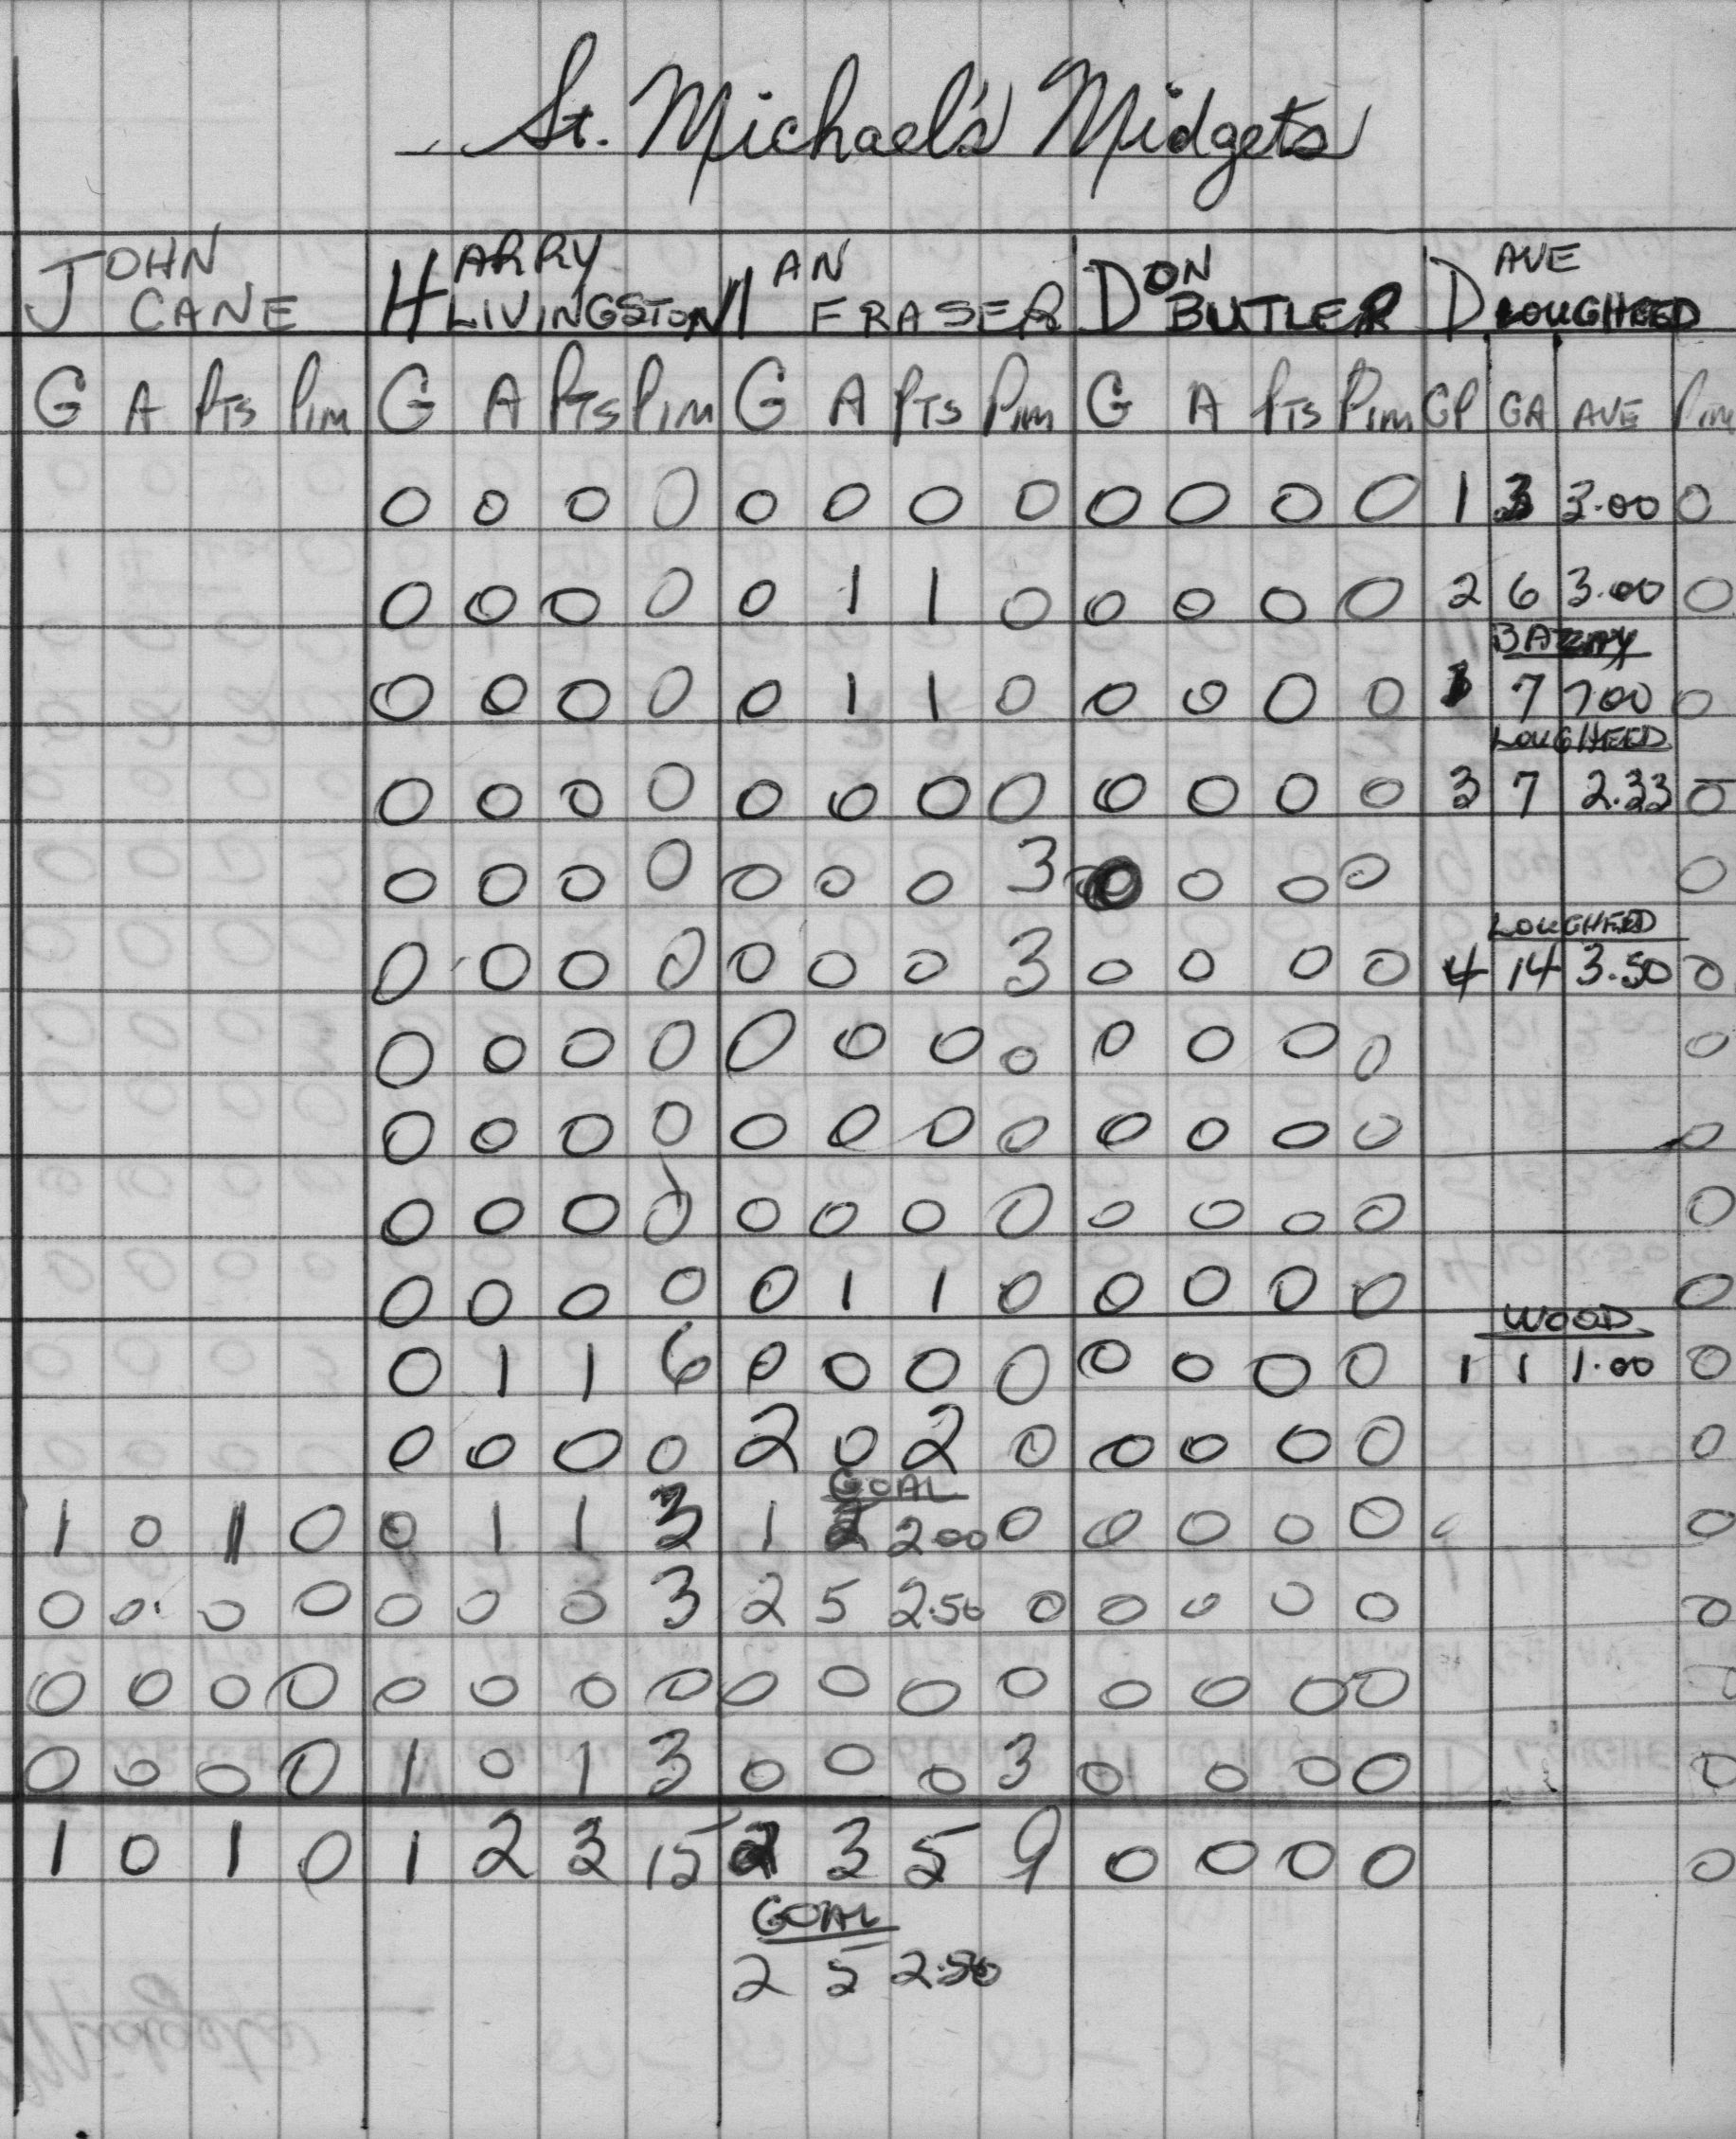 St. Michael's Midgets
JOHN CANE HARRY LIVINGSTON IAN FRASER DON BUTLER DAVE LOUGHEED
G A PTS PIM G A PTS PIM G A PTS PIM G A PTS PIM GP GA AVE PIM
0 0 0 0 0 0 0 0 0 0 0 0 1 3 3.00 0
0 0 0 0 0 1 1 0 0 0 0 0 2 6 3.00 0
BARRY
0 0 0 0 0 1 1 0 0 0 0 0 1 7 7.00 0
LOUGHEED
0 0 0 0 0 0 0 0 0 0 0 0 3 7 2.33 0
0 0 0 0 0 0 0 3 0 0 0 0 0
LOUGHEED
0 0 0 0 0 0 0 3 0 0 0 0 4 14 3.50 0
0 0 0 0 0 0 0 0 0 0 0 0 0
0 0 0 0 0 0 0 0 0 0 0 0 0
0 0 0 0 0 0 0 0 0 0 0 0 0
0 0 0 0 0 1 1 0 0 0 0 0 0
WOOD
0 1 1 6 0 0 0 0 0 0 0 0 1 1 1.00 0
0 0 0 0 2 0 2 0 0 0 0 0 0
GOAL
1 0 1 0 0 1 1 3 1 2 2.00 0 0 0 0 0 0
0 0 0 0 0 0 0 3 2 5 2.50 0 0 0 0 0 0
0 0 0 0 0 0 0 0 0 0 0 0 0 0 0 0 0
0 0 0 0 1 0 1 3 0 0 0 3 0 0 0 0 0
1 0 1 0 1 2 3 15 2 3 5 9 0 0 0 0 0
GOAL
2 5 2.50